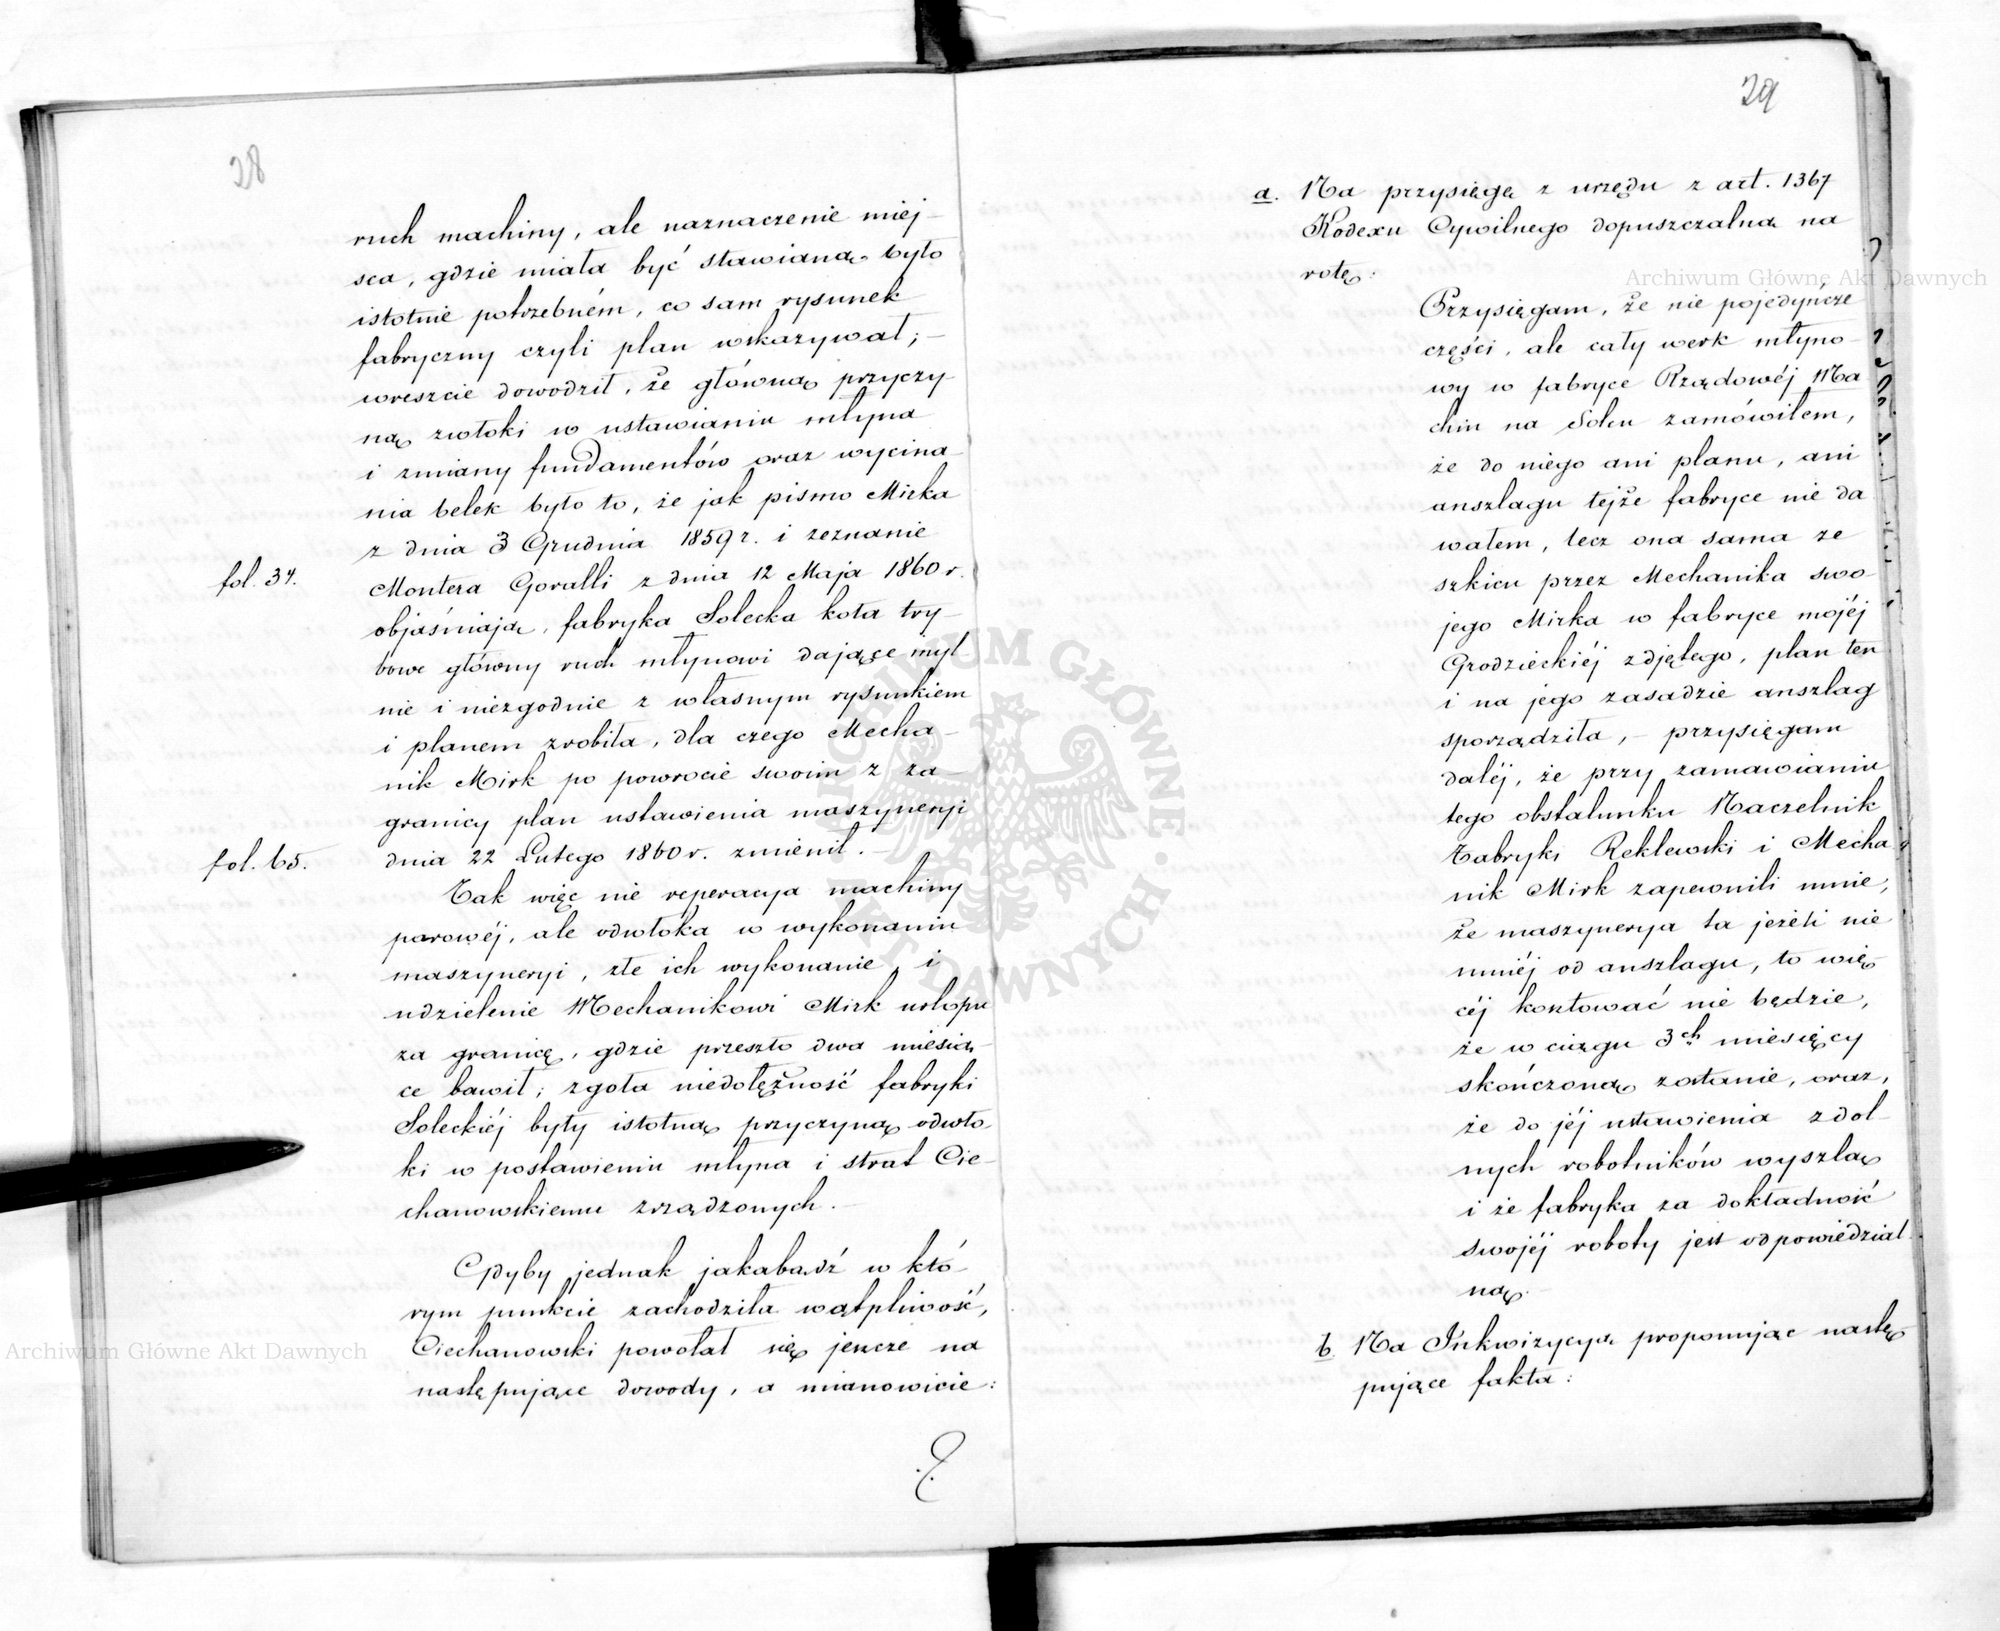 28
ruch machiny, ale naznaczenie miej-
sca, gdzie miała być stawianą było
istotnie potrzebném, co sam rysunek
fabryczny czyli plan wskazywał; -
wreszcie dowodził, że główną przyczy-
ną zwłoki w ustawianiu młyna
i zmiany fundamentów oraz wycina-
nia belek było to, że jak pismo Mirka
z dnia 3 Grudnia 1859 r. i zeznanie
fol. 34.
Montera Goralli z dnia 12 Maja 1860 r.
objaśniają, fabryka Solecka koła try-
bowe główny ruch młynowi dające myl-
nie i niezgodnie z własnym rysunkiem
i planem zrobiła, dla czego Mecha-
nik Mirk po powrocie swoim z za-
granicy plan ustawienia maszyneryi
fol. 65.
dnia 22 Lutego 1860 r. zmienił. -
Tak więc nie reperacya machiny
parowéj, ale odwłoka w wykonaniu
maszyneryi, złe ich wykonanie i
udzielenie Mechanikowi Mirk urlopu
za granicę, gdzie przeszło dwa miesią-
ce bawił; zgoła niedołężność fabryki
Soleckiéj były istotną przyczyną odwło-
ki w postawieniu młyna i strat Cie-
chanowskiemu zrządzonych. -
Gdyby jednak jakabądź w któ-
rym punkcie zachodziła wątpliwość,
Ciechanowski powołał się jeszcze na
następujące dowody, a mianowicie:
29
a. Na przysięgę z urzędu z art. 1367
Kodexu Cywilnego dopuszczalną na
rotę:
Przysięgam, że nie pojedyńcze
części, ale cały werk młyno-
wy w fabryce Rządowéj Ma
chin na Solcu zamówiłem,
że do niego ani planu, ani
anszlagu tejże fabryce nie da
wałem, lecz ona sama ze
szkicu przez Mechanika swo-
jego Mirka w fabryce mojéj
Grodzieckiéj zdjętego, plan ten
i na jego zasadzie anszlag
sporządziła, - przysięgam
daléj, że przy zamawianiu
tego obstalunku Naczelnik
Fabryki Reklewski i Mecha
nik Mirk zapewnili mnie,
że maszynerya ta jeżeli nie
mniéj od anszlagu, to wię-
céj kosztować nie będzie,
że w ciągu 3ch miesięcy
skończoną zostanie, oraz,
że do jéj ustawienia zdol-
nych robotników wyszlą
i że fabryka za dokładność
swojéj roboty jest odpowiedzial-
ną. -
b Na Inkwizycyą proponując nastę-
pujące fakta:
Archiwum Główne Akt Dawnych
Archiwum Główne Akt Dawnych
ARCHIWUM GŁÓWNE AKT DAWNYCH